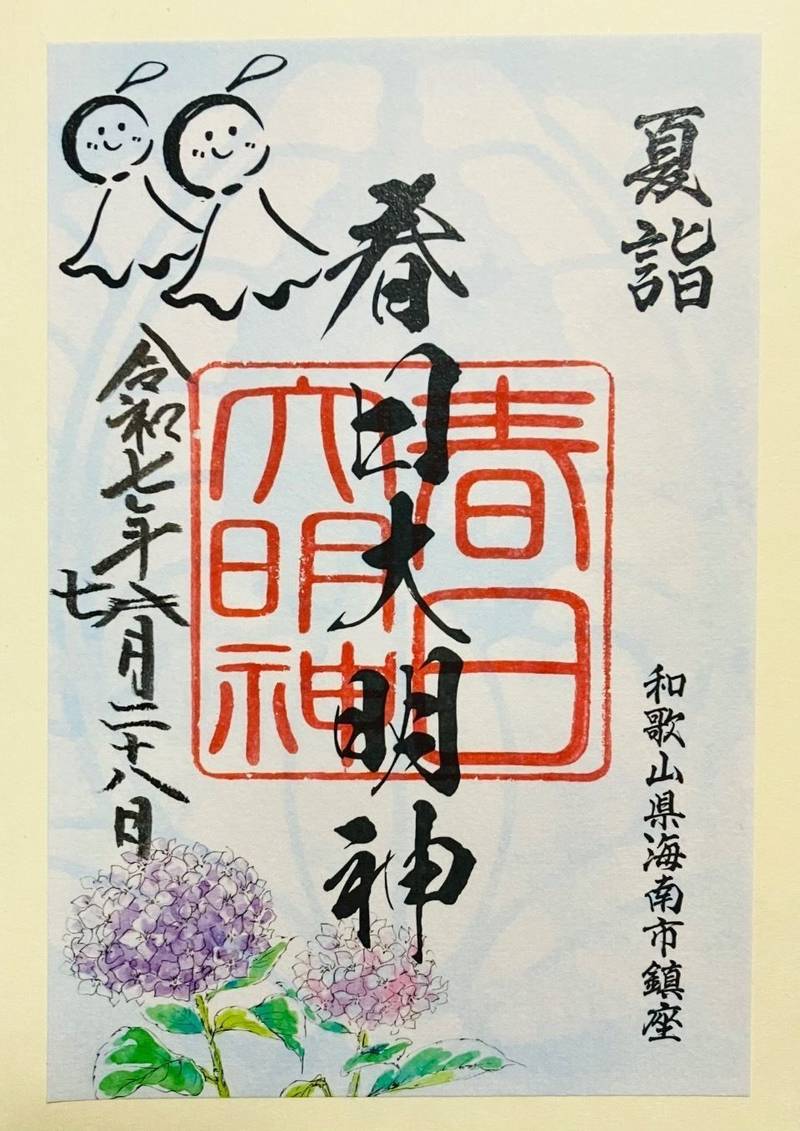 夏詣
和歌山県海南市鎮座
春日大明神
春日
大明神
令和七年七月二十八日